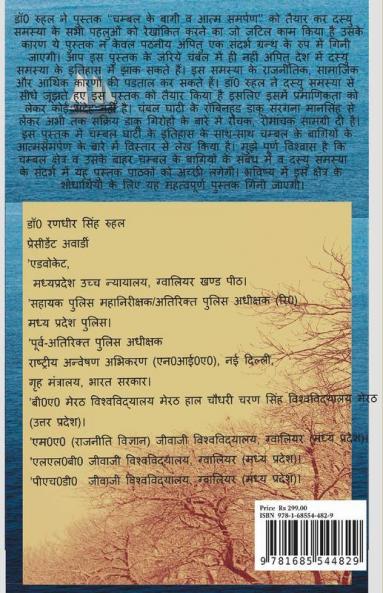 डॉ0 रुहल ने पुस्तक "चम्बल के बागी व आत्म समर्पण" को तैयार कर दस्यु
समस्या के सभी पहलुओं को रेखांकित करने का जो जटिल काम किया है उसके
कारण ये पुस्तक न केवल पठनीय अपितु एक संदर्भ ग्रन्थ के रुप में गिनी
जाएगी। आप इस पुस्तक के जरिये चंबल में ही नहीं अपितु देश में दस्यु
समस्या के इतिहास में झाक सकते हैं। इस समस्या के राजनीतिक, सामाजिक
और आर्थिक कारणों की पडताल कर सकते हैं। डॉ0 रुहल ने दस्यु समस्या से
सीधे जूझते हुए इस पुस्तक को तैयार किया है इसलिए इसमें प्रमाणिकता को
लेकर कोई संदेह नहीं है। चंबल घाटी के रॉबिनहुड डाकू सरगना मानसिंह से
लेकर अभी तक सक्रिय डाकू गिरोहों के बारे में रोचक, रोमांचक सामग्री दी है।
इस पुस्तक में चम्बल घाटी के इतिहास के साथ-साथ चम्बल के बागियों के
आत्मसमर्पण के बारे में विस्तार से लेख किया है। मुझे पूर्ण विश्वास है कि
चम्बल क्षेत्र एवं उसके बाहर चम्बल के बागियों के संबंध में व दस्यु समस्या
के संदर्भ में यह पुस्तक पाठकों को अच्छी लगेगी। भविष्य में इस क्षेत्र के
शोधार्थियों के लिए यह महत्वपूर्ण पुस्तक गिनी जाएगी।
डॉ0 रणधीर सिंह रुहल
प्रेसीडेंट अवार्डी
'एडवोकेट,
मध्यप्रदेश उच्च न्यायालय, ग्वालियर खण्ड पीठ।
'सहायक पुलिस महानिरीक्षक/अतिरिक्त पुलिस अधीक्षक (रि0)
मध्य प्रदेश पुलिस।
'पूर्व-अतिरिक्त पुलिस अधीक्षक
राष्ट्रीय अन्वेषण अभिकरण (एन0आई0ए0), नई दिल्ली,
गृह मंत्रालय, भारत सरकार।
'बी0ए0 मेरठ विश्वविद्यालय मेरठ हाल चौधरी चरण सिंह विश्वविद्यालय मेरठ
(उत्तर प्रदेश)।
'एम0ए0 (राजनीति विज्ञान) जीवाजी विश्वविद्यालय, ग्वालियर (मध्य प्रदेश)।
'एलएल0बी0 जीवाजी विश्वविद्यालय, ग्वालियर (मध्य प्रदेश)।
'पीएच0डी0 जीवाजी विश्वविद्यालय, ग्वालियर (मध्य प्रदेश)।
Price Rs 299.00
ISBN 978-1-68554-482-9
9 781685 544829